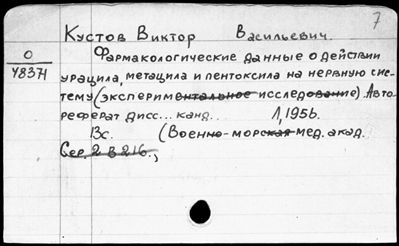 7
Кустов Виктор Васильевич.
О
48371
Фармакологические данные о действии
урацила, метацила и пентоксила на нервную сис-
тему (экспериментальное исследование). Авто-
реферат дисс... канд. Л, 1956.
13с. (Военно-морская мед. акад.
Сер. 2 В 216.,